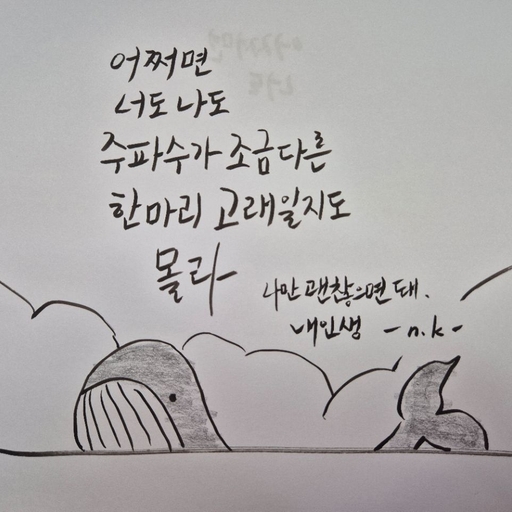 어쩌면
너도 나도
주파수가 조금 다른
한마리 고래일지도
몰라
나만 괜찮으면 돼.
내인생 -n.k-